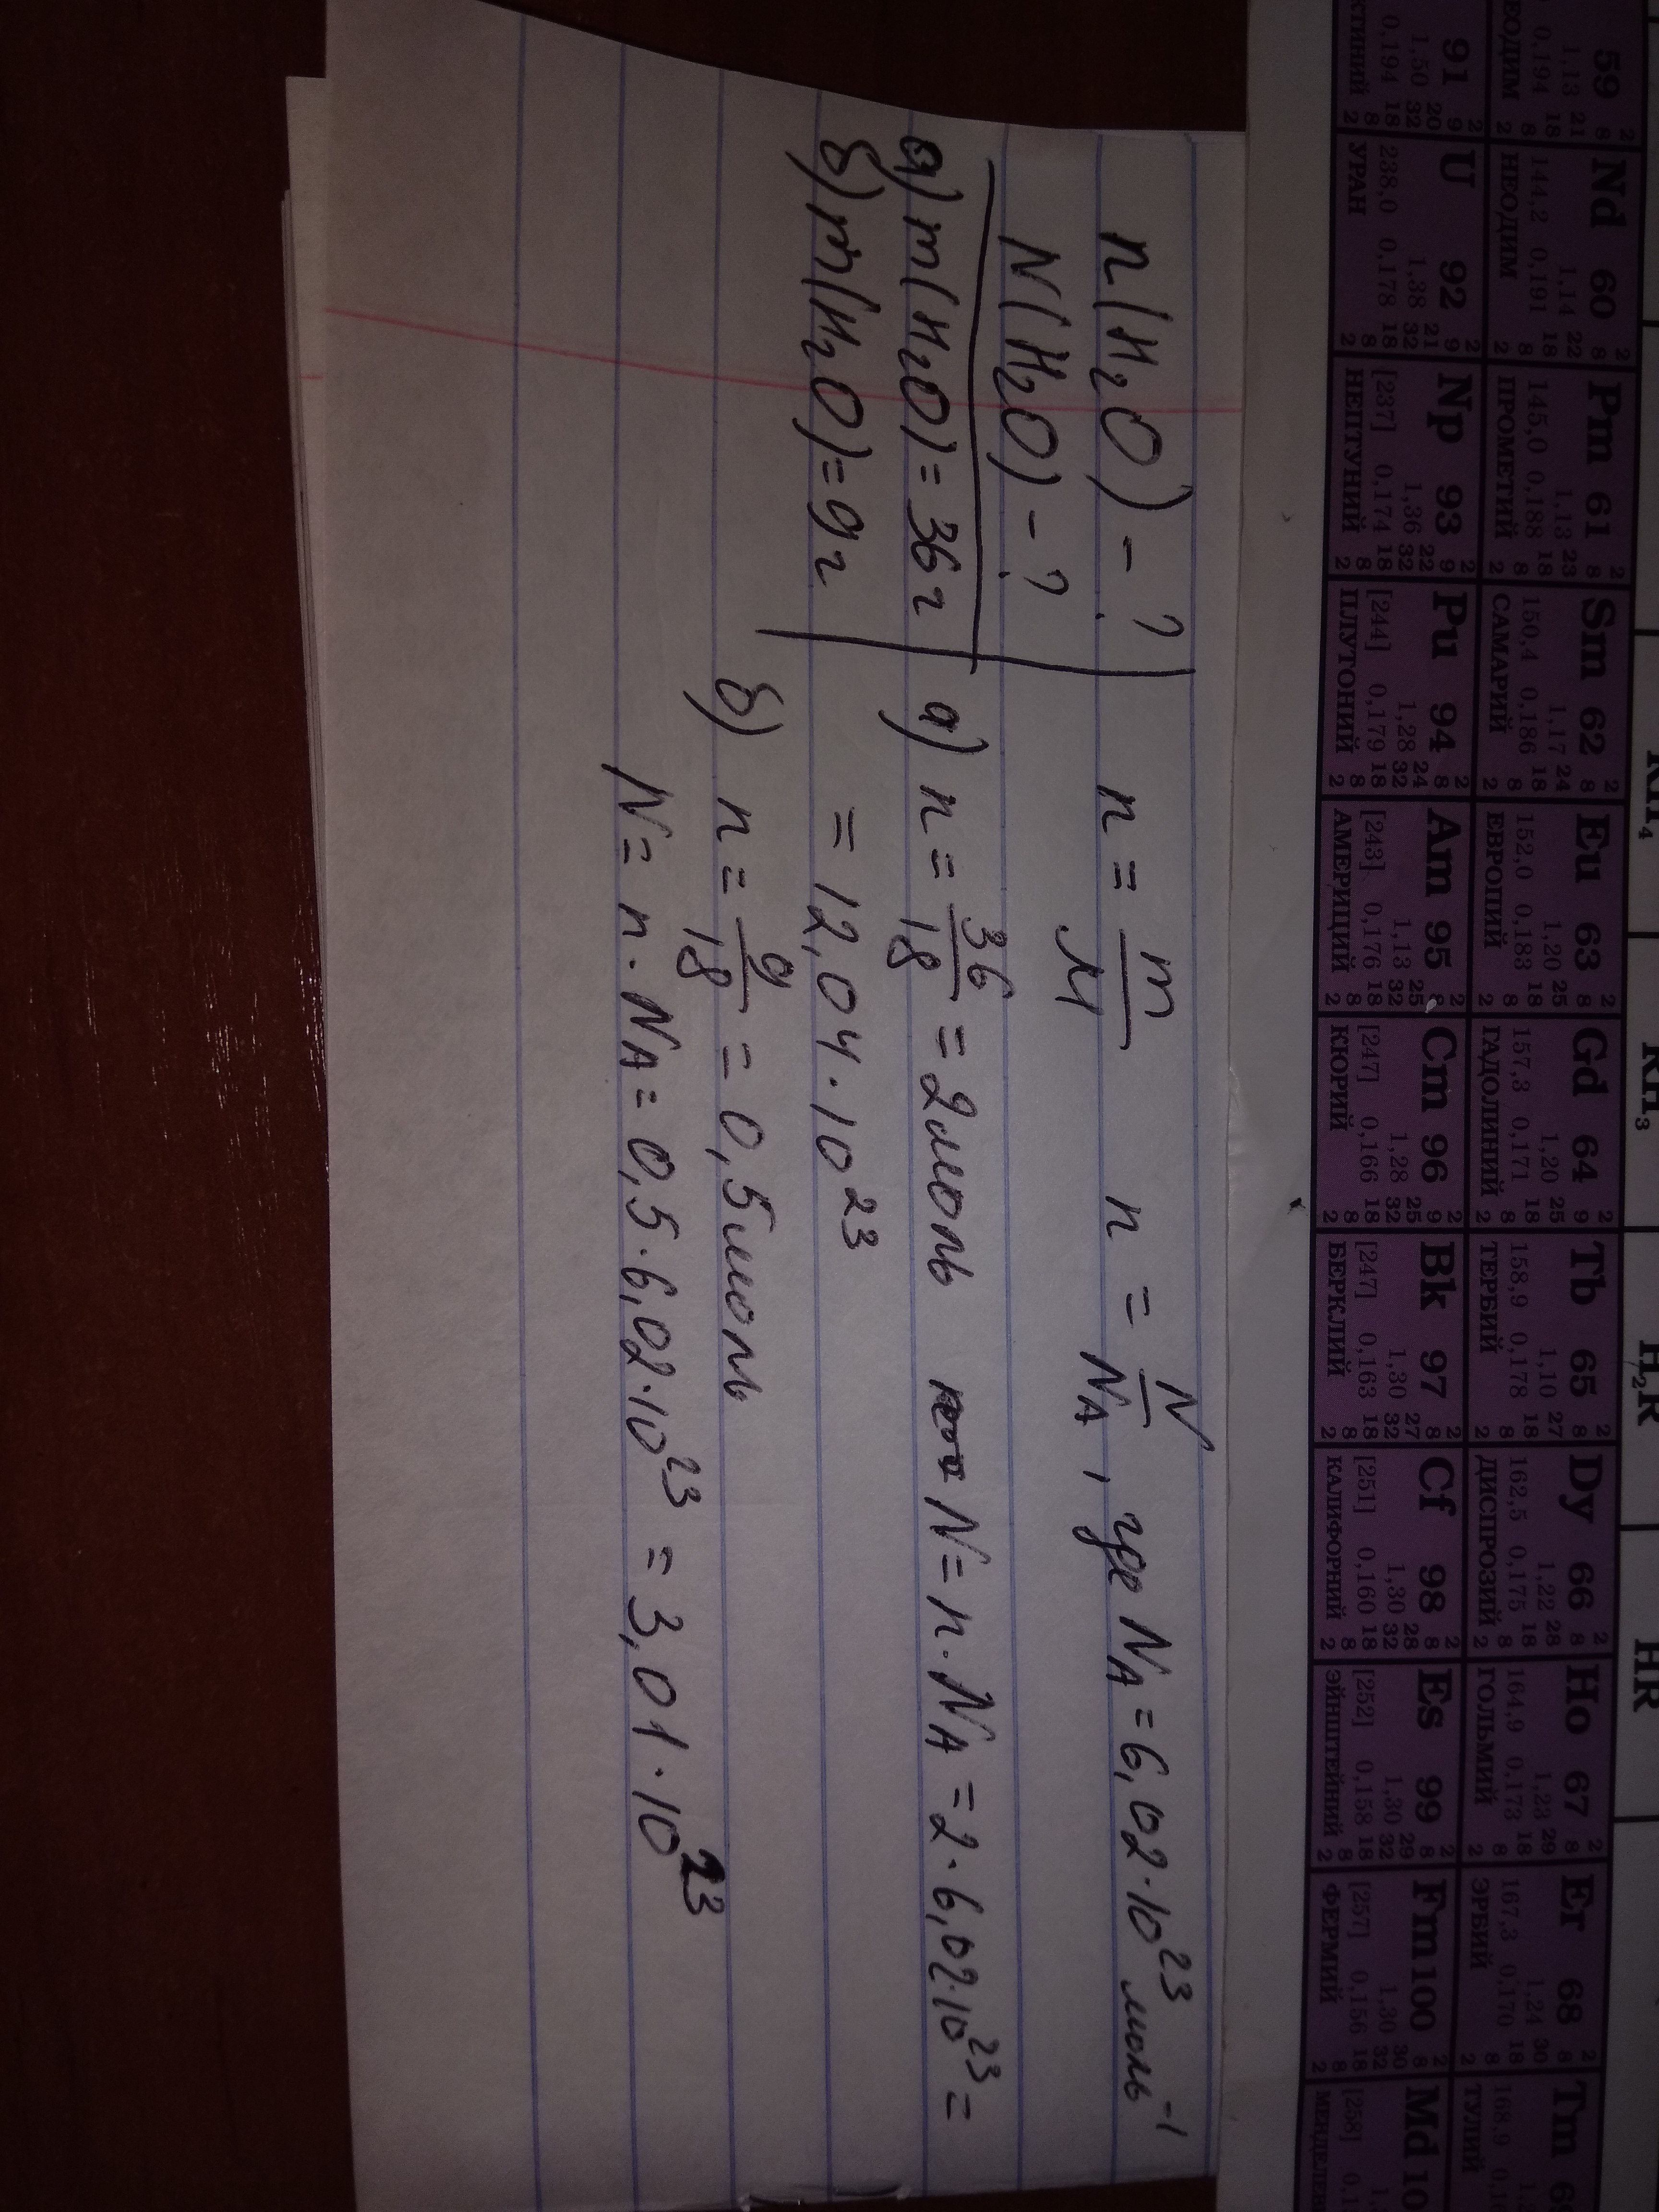 RH₄ RH₃ H₂R HR
59 Nd 60 Pm 61 Sm 62 Eu 63 Gd 64 Tb 65 Dy 66 Ho 67 Er 68 Tm
1,13 1,14 1,13 1,17 1,20 1,20 1,10 1,22 1,23 1,24
0,194 144,2 0,191 145,0 0,188 150,4 0,186 152,0 0,183 157,3 0,171 158,9 0,178 162,5 0,175 164,9 0,173 167,3 0,170 168,9
НЕОДИМ ПРОМЕТИЙ САМАРИЙ ЕВРОПИЙ ГАДОЛИНИЙ ТЕРБИЙ ДИСПРОЗИЙ ГОЛЬМИЙ ЭРБИЙ ТУЛИЙ
91 U 92 Np 93 Pu 94 Am 95 Cm 96 Bk 97 Cf 98 Es 99 Fm 100 Md
1,50 1,38 1,36 1,28 1,13 1,28 1,30 1,30 1,30 1,30
0,194 238,0 0,178 [237] 0,174 [244] 0,179 [243] 0,176 [247] 0,166 [247] 0,163 [251] 0,160 [252] 0,158 [257] 0,156 [258]
УРАН НЕПТУНИЙ ПЛУТОНИЙ АМЕРИЦИЙ КЮРИЙ БЕРКЛИЙ КАЛИФОРНИЙ ЭЙНШТЕЙНИЙ ФЕРМИЙ
n(H₂O) - ? n = m/M n = N/N_A, где N_A = 6,02·10²³ моль⁻¹
N(H₂O) - ?
а) m(H₂O) = 36 г а) n = 36/18 = 2 моль N = n·N_A = 2·6,02·10²³ =
б) m(H₂O) = 9 г = 12,04·10²³
б) n = 9/18 = 0,5 моль
N = n·N_A = 0,5·6,02·10²³ = 3,01·10²³